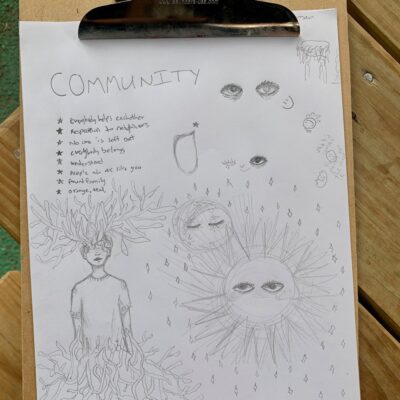 COMMUNITY
★ Everybody helps eachother
★ Respect for neighbors
★ no one is left out
★ everybody belongs
★ understood
★ people who are like you
★ found family
★ orange, teal